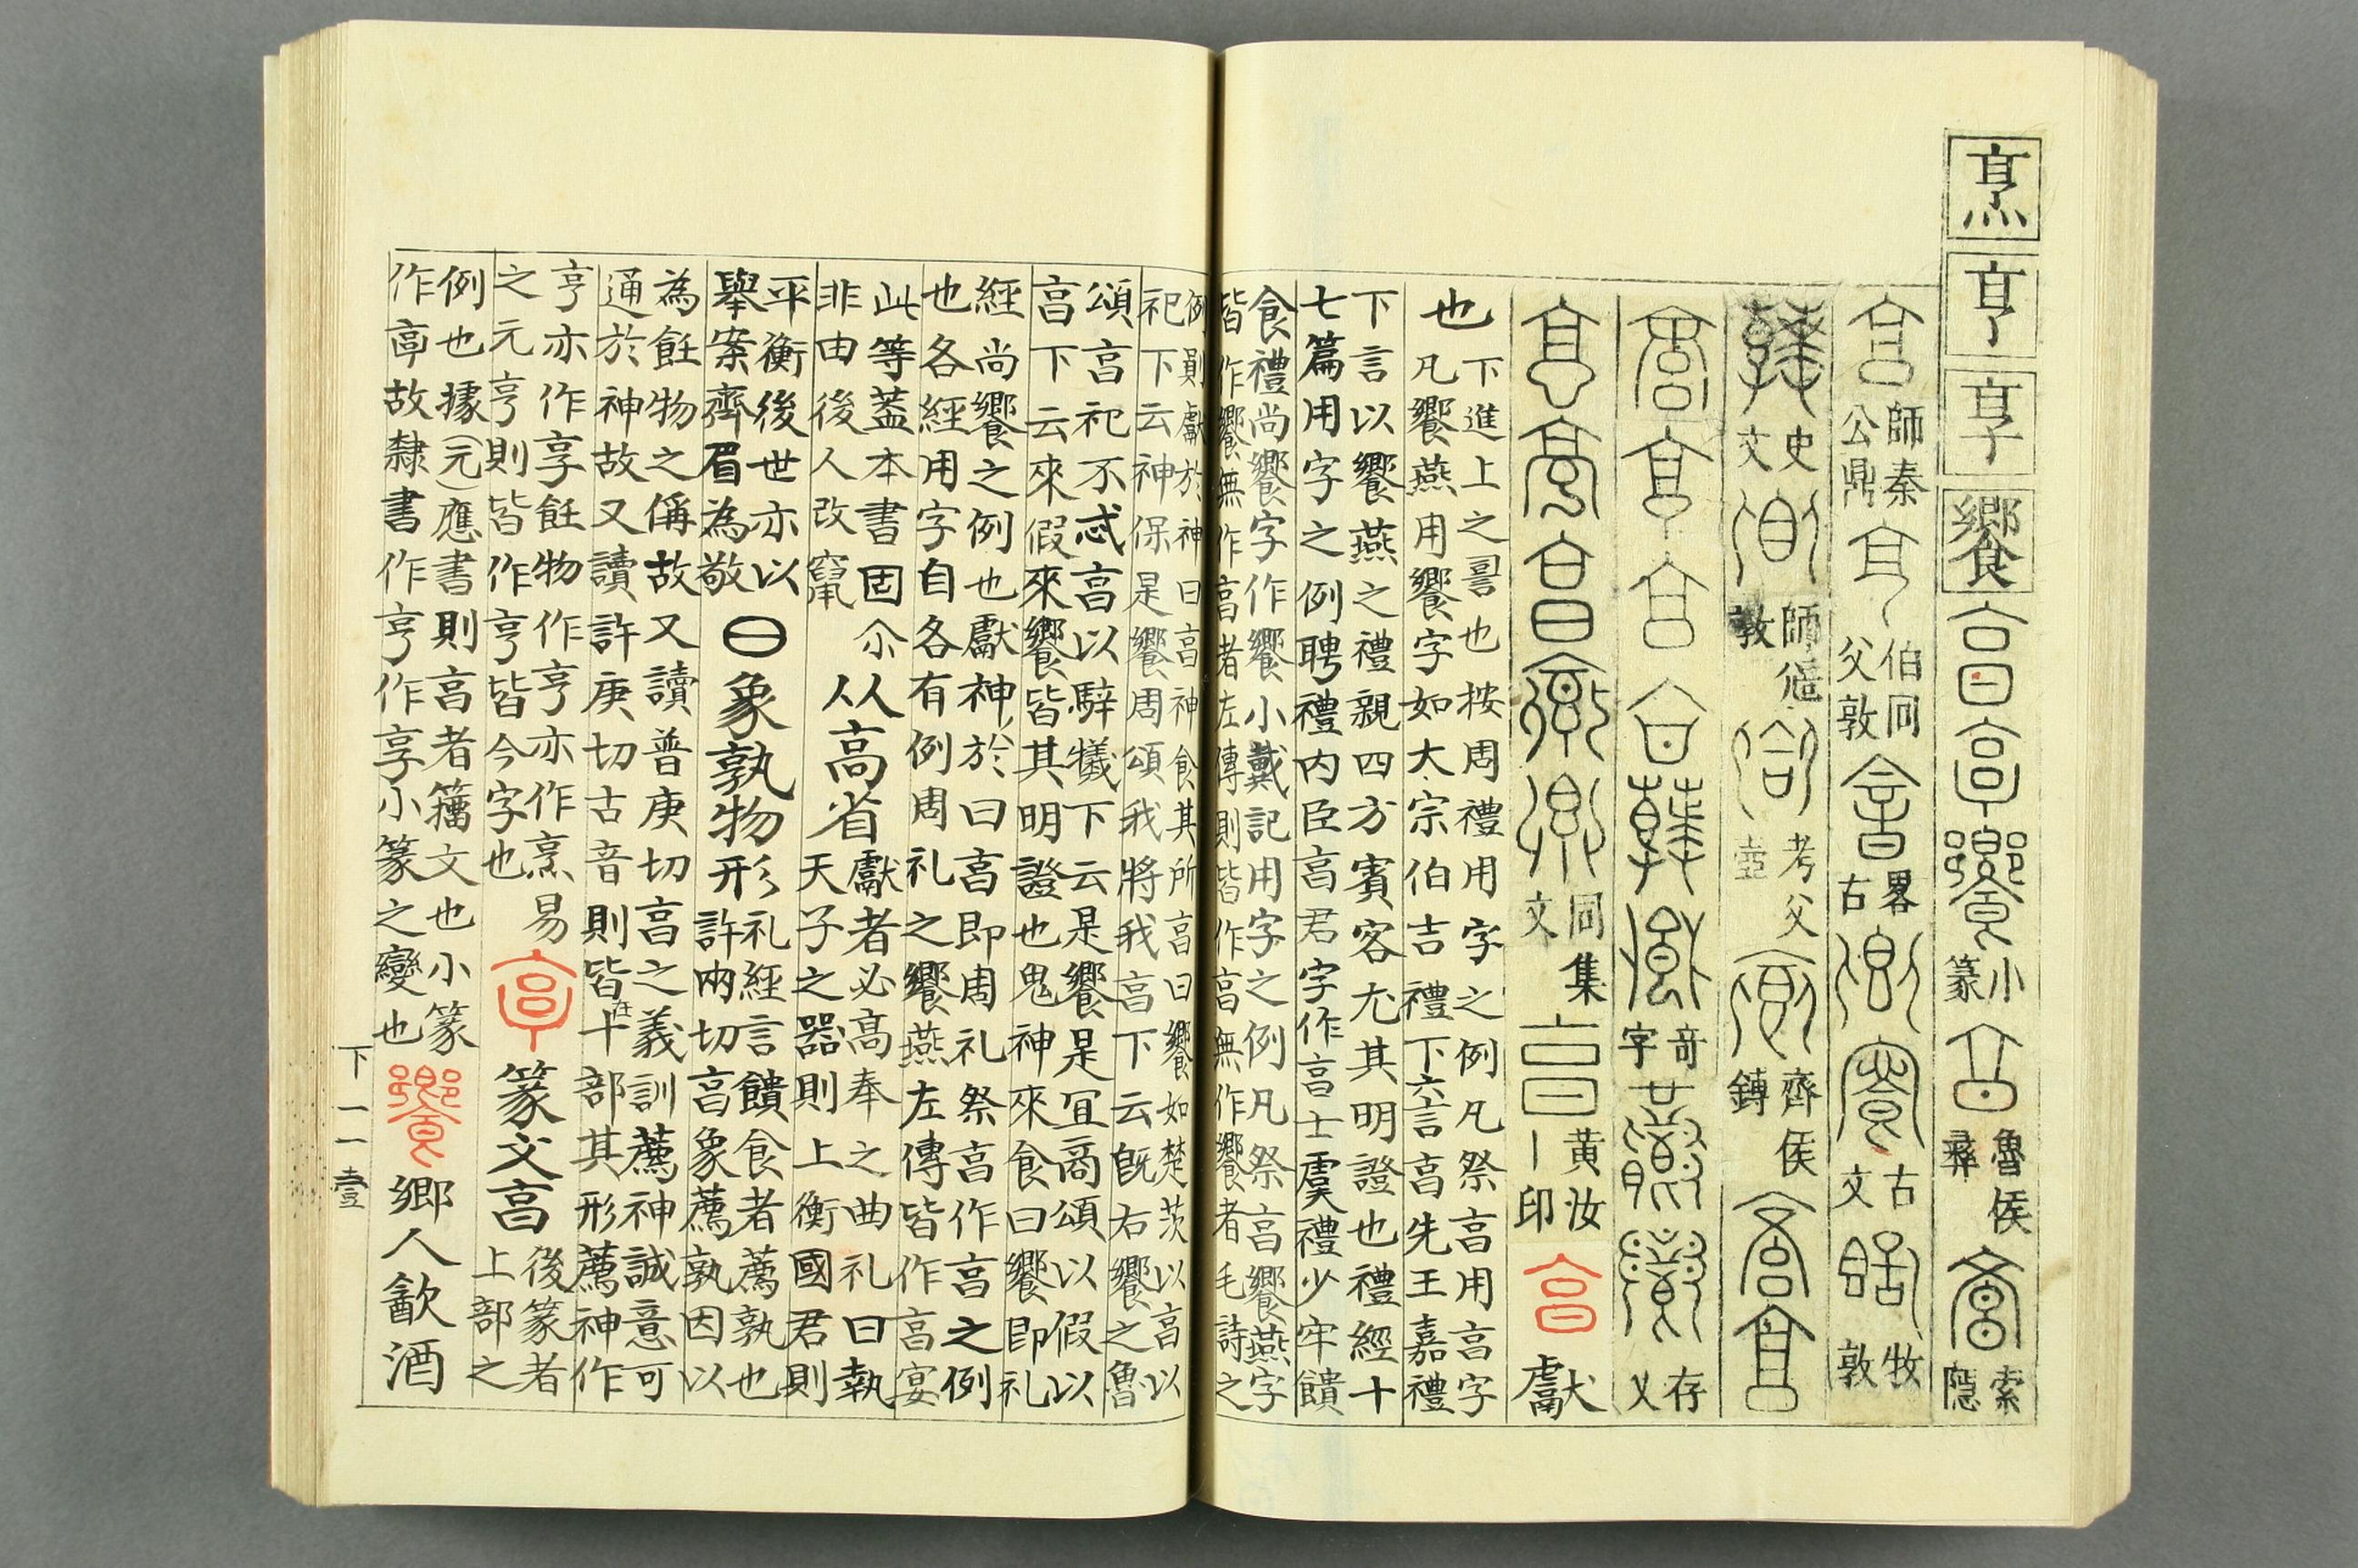 烹亨享饗
小篆 魯侯彝 索隱
師秦公鼎 伯同父敦 畧古 古文 牧敦
史文 敦 考父壺 齊侯鎛
奇字 存乂
同文集 黄汝丨印 亯獻
也
下進上之䛐也按周禮用字之例凡祭亯用亯字
凡饗燕用饗字如大宗伯吉禮下六言亯先王嘉禮
下言以饗燕之禮親四方賓客尤其明證也禮經十
七篇用字之例聘禮内臣亯君字作亯士虞禮少牢饋
食禮尚饗字作饗小戴記用字之例凡祭亯饗燕字
皆作饗無作亯者左傳則皆作亯無作饗者毛詩之
例則獻於神曰亯神食其所亯曰饗如楚茨以亯以
祀下云神保是饗周頌我將我亯下云旣右饗之魯
頌亯祀不忒亯以騂犧下云是饗是宜商頌以假以
亯下云來假來饗皆其明證也鬼神來食曰饗即礼
經尚饗之例也獻神於曰亯即周礼祭亯作亯之例
也各經用字自各有例周礼之饗燕左傳皆作亯宴
此等葢本書固尒
非由後人改竄
从高省
獻者必高奉之曲礼曰執
天子之器則上衡國君則
平衡後世亦以
舉案齊眉為敬
象孰物形
礼經言饋食者薦孰也
許兩切亯象薦孰因以
為飪物之偁故又讀普庚切亯之義訓薦神誠意可
通於神故又讀許庚切古音則皆在十部其形薦神作
亨亦作享飪物作亨亦作烹易
之元亨則皆作亨皆今字也
篆文亯
後篆者
上部之
例也據(元)應書則亯者籀文也小篆
作𦎫故隸書作亨作享小篆之變也
饗鄉人㱃酒
下 一一 壹